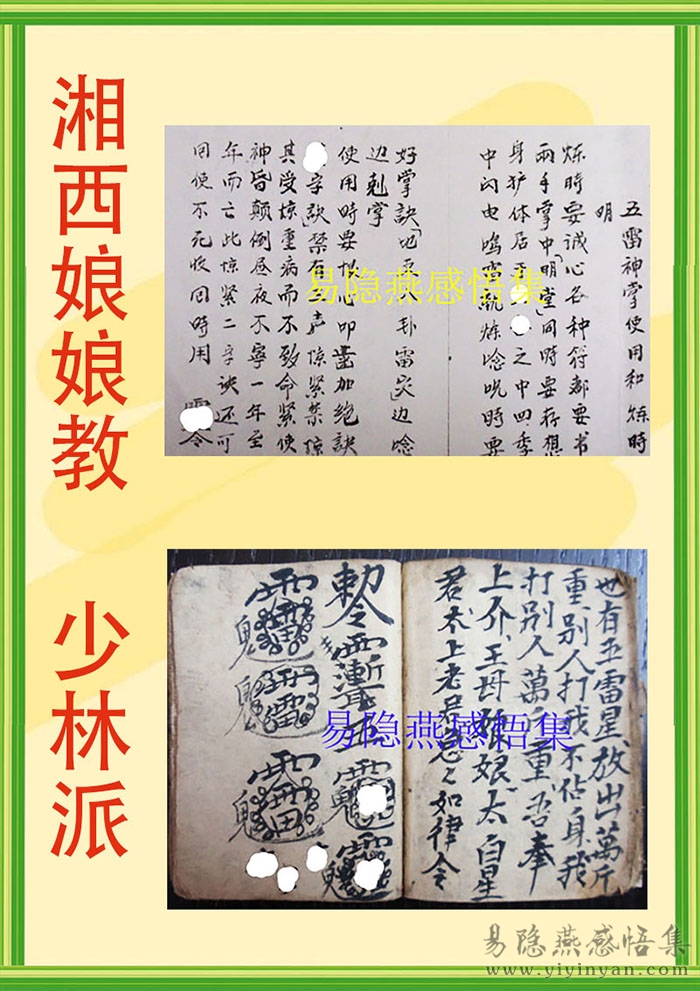 湘西娘娘教 少林派
五雷神掌使用和炼時
明
炼時要诚心各种符都要书
兩手掌中「明堂」同時要存想
身 体居 之中四季
中闪电鸣雷 炼唸咒時要
好掌訣「地 八卦雷 」边唸
边 掌
使用時要以心叩齒加绝訣
字訣」禁有 声惊紧禁惊
其受惊重病而不致命紧使
神昏颠倒昼夜不寧一年至
年而亡此惊紧二字訣还可
同使不 收回時用
易隐燕感悟集
也有五雷星放出萬斤
重别人打我不佔身我
打别人萬斤重吾奉
上介王母娘娘太白星
君太上老君急々如律令
勅令
易隐燕感悟集
易隐燕感悟集
www.yiyinyan.com